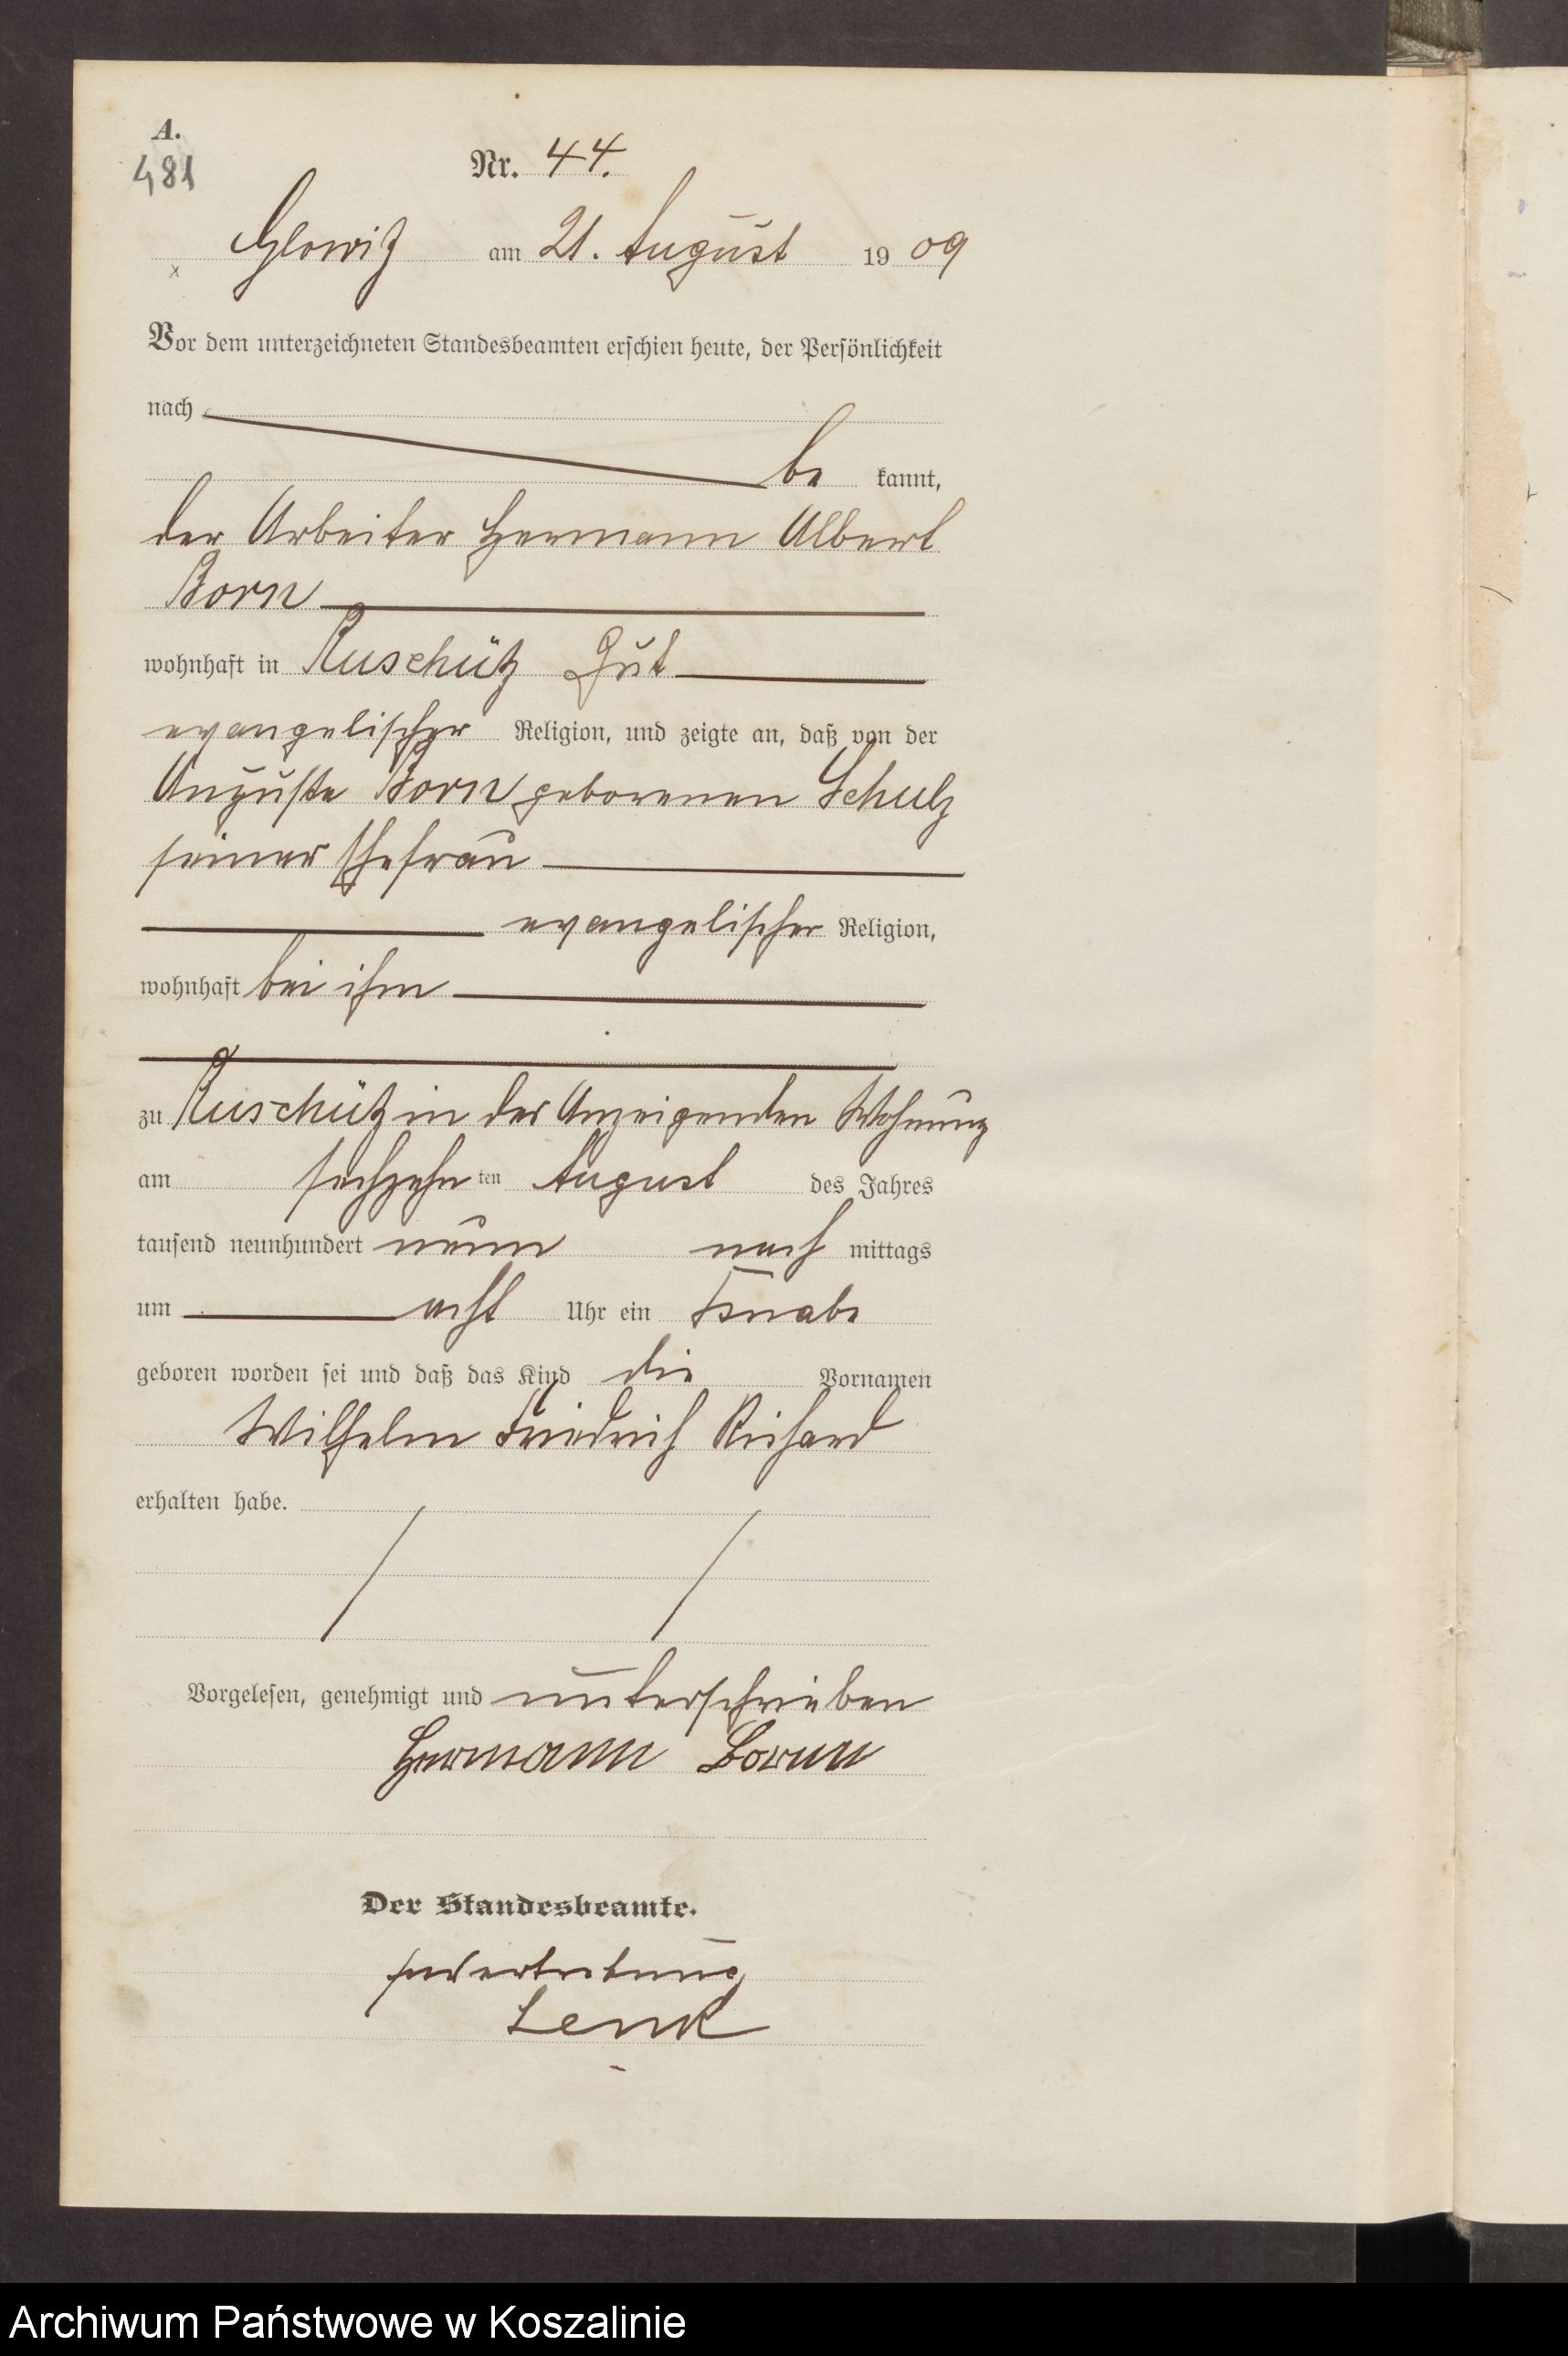 A.
481
Nr. 44.
Glowitz am 21. August 1909
Vor dem unterzeichneten Standesbeamten erschien heute, der Persönlichkeit
nach
be kannt,
der Arbeiter Hermann Albert
Born
wohnhaft in Ruschütz Gut
evangelischer Religion, und zeigte an, daß von der
Auguste Born geborenen Schulz
seiner Ehefrau
evangelischer Religion,
wohnhaft bei ihm
zu Ruschütz in des Anzeigenden Wohnung
am sechzehn ten August des Jahres
tausend neunhundert neun nach mittags
um acht Uhr ein Knabe
geboren worden sei und daß das Kind die Vornamen
Wilhelm Friedrich Richard
erhalten habe.
Vorgelesen, genehmigt und unterschrieben
Hermann Born
Der Standesbeamte.
In Vertretung
Lenk
Archiwum Państwowe w Koszalinie